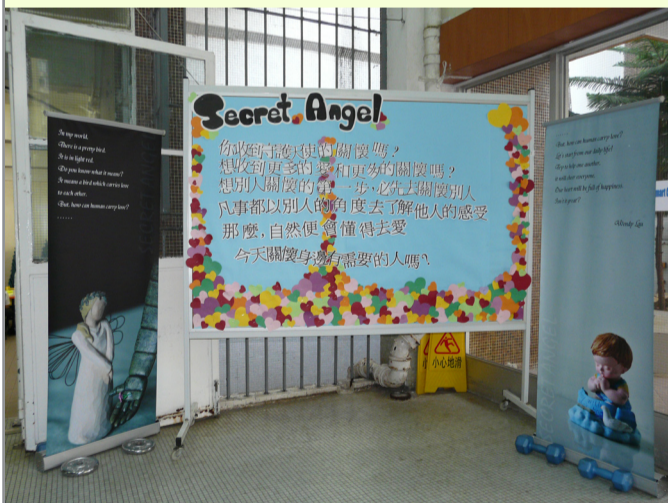 In my world,
There is a pretty bird.
It is in light red.
Do you know what it means?
It means a bird which carries love
to each other.
But, how can human carry love?
......
Secret Angel
你收到守護天使的關懷嗎？
想收到更多的愛和更多的關懷嗎？
想別人關懷的第一步，必先去關懷別人
凡事都以別人的角度去了解他人的感受
那麼，自然便會懂得去愛
今天關懷身邊有需要的人嗎?
小心地滑
But, how can human carry love?
Let's start from our daily life!
Try to help one another
everyone.
Our heart will be full of happiness.
Isn't it great?